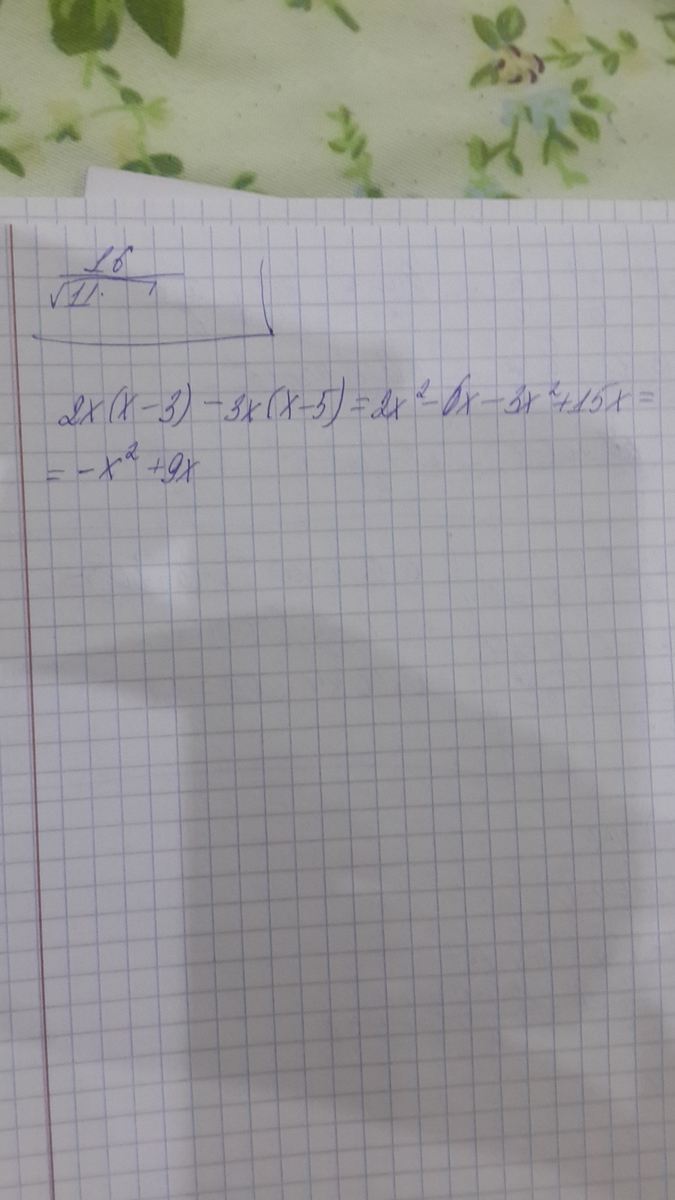 16
√11
2x(x-3)-3x(x-5)=2x²-6x-3x²+15x=
=-x²+9x